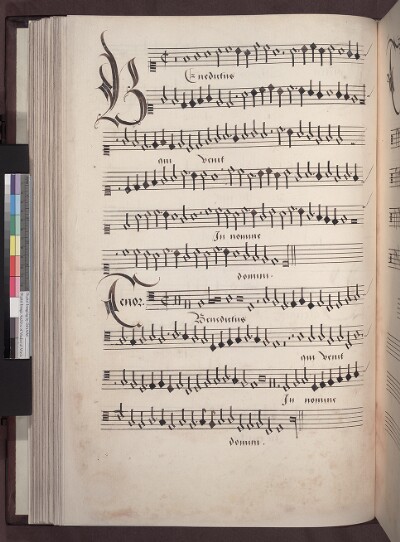 Benedictus
qui venit
In nomine
domini.
Tenor.
Benedictus
qui venit
In nomine
domini.